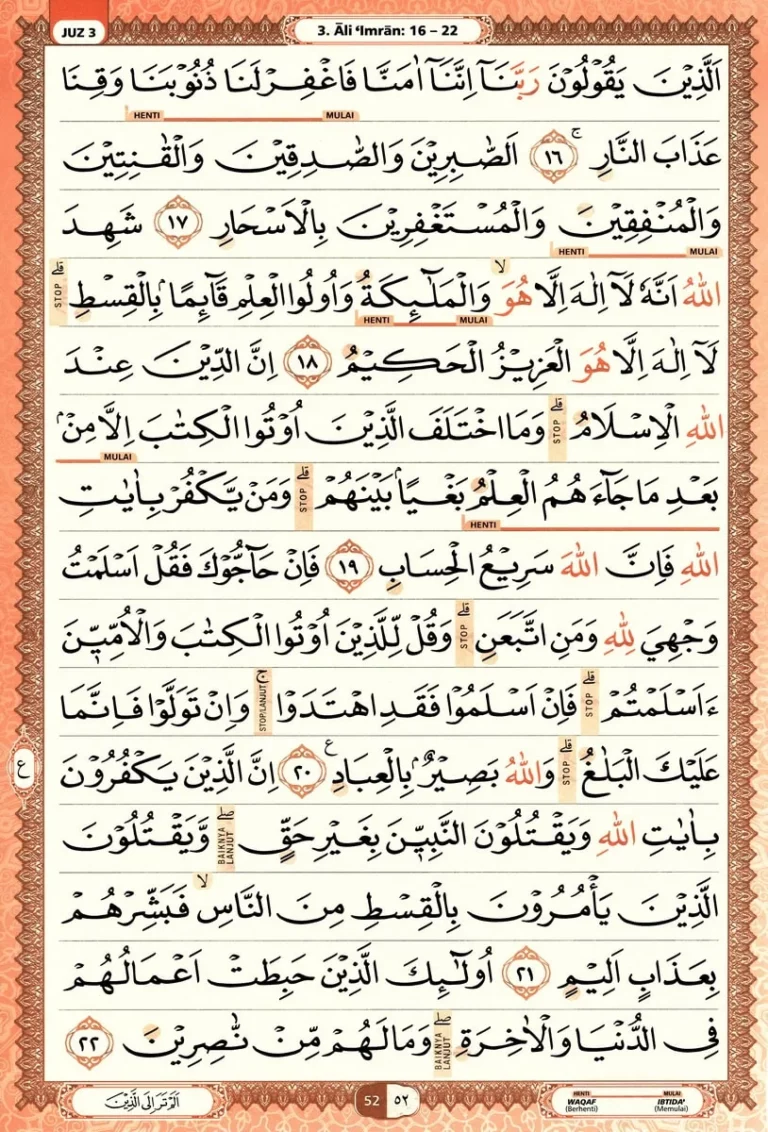 JUZ 3
3. Āli ‘Imrān: 16 – 22
اَلَّذِيْنَ يَقُوْلُوْنَ رَبَّنَآ اِنَّنَآ اٰمَنَّا فَاغْفِرْ لَنَا ذُنُوْبَنَا وَقِنَا
MULAI HENTI
عَذَابَ النَّارِۚ ١٦ اَلصّٰبِرِيْنَ وَالصّٰدِقِيْنَ وَالْقٰنِتِيْنَ
وَالْمُنْفِقِيْنَ وَالْمُسْتَغْفِرِيْنَ بِالْاَسْحَارِ ١٧ شَهِدَ
MULAI HENTI
اللّٰهُ اَنَّهٗ لَآ اِلٰهَ اِلَّا هُوَۙ وَالْمَلٰۤىِٕكَةُ وَاُولُوا الْعِلْمِ قَاۤىِٕمًاۢ بِالْقِسْطِۗ STOP
MULAI HENTI
لَآ اِلٰهَ اِلَّا هُوَ الْعَزِيْزُ الْحَكِيْمُ ١٨ اِنَّ الدِّيْنَ عِنْدَ
اللّٰهِ الْاِسْلَامُۗ STOP وَمَا اخْتَلَفَ الَّذِيْنَ اُوْتُوا الْكِتٰبَ اِلَّا مِنْۢ
MULAI
بَعْدِ مَا جَاۤءَهُمُ الْعِلْمُ بَغْيًاۢ بَيْنَهُمْۗ STOP وَمَنْ يَّكْفُرْ بِاٰيٰتِ
HENTI
اللّٰهِ فَاِنَّ اللّٰهَ سَرِيْعُ الْحِسَابِ ١٩ فَاِنْ حَاۤجُّوْكَ فَقُلْ اَسْلَمْتُ
وَجْهِيَ لِلّٰهِ وَمَنِ اتَّبَعَنِۗ STOP وَقُلْ لِّلَّذِيْنَ اُوْتُوا الْكِتٰبَ وَالْاُمِّيّٖنَ
ءَاَسْلَمْتُمْۗ STOP فَاِنْ اَسْلَمُوْا فَقَدِ اهْتَدَوْاۚ STOP/LANJUT وَاِنْ تَوَلَّوْا فَاِنَّمَا
عَلَيْكَ الْبَلٰغُۗ STOP وَاللّٰهُ بَصِيْرٌۢ بِالْعِبَادِ ࣖ ٢٠ اِنَّ الَّذِيْنَ يَكْفُرُوْنَ
ع
بِاٰيٰتِ اللّٰهِ وَيَقْتُلُوْنَ النَّبِيّٖنَ بِغَيْرِ حَقٍّۖ BAIKNYA LANJUT وَّيَقْتُلُوْنَ
الَّذِيْنَ يَأْمُرُوْنَ بِالْقِسْطِ مِنَ النَّاسِۙ فَبَشِّرْهُمْ
بِعَذَابٍ اَلِيْمٍ ٢١ اُولٰۤىِٕكَ الَّذِيْنَ حَبِطَتْ اَعْمَالُهُمْ
فِى الدُّنْيَا وَالْاٰخِرَةِۖ BAIKNYA LANJUT وَمَا لَهُمْ مِّنْ نّٰصِرِيْنَ ٢٢
اَلَمْ تَرَ اِلَى الَّذِيْنَ
52 ٥٢
HENTI MULAI
WAQAF IBTIDA'
(Berhenti) (Memulai)